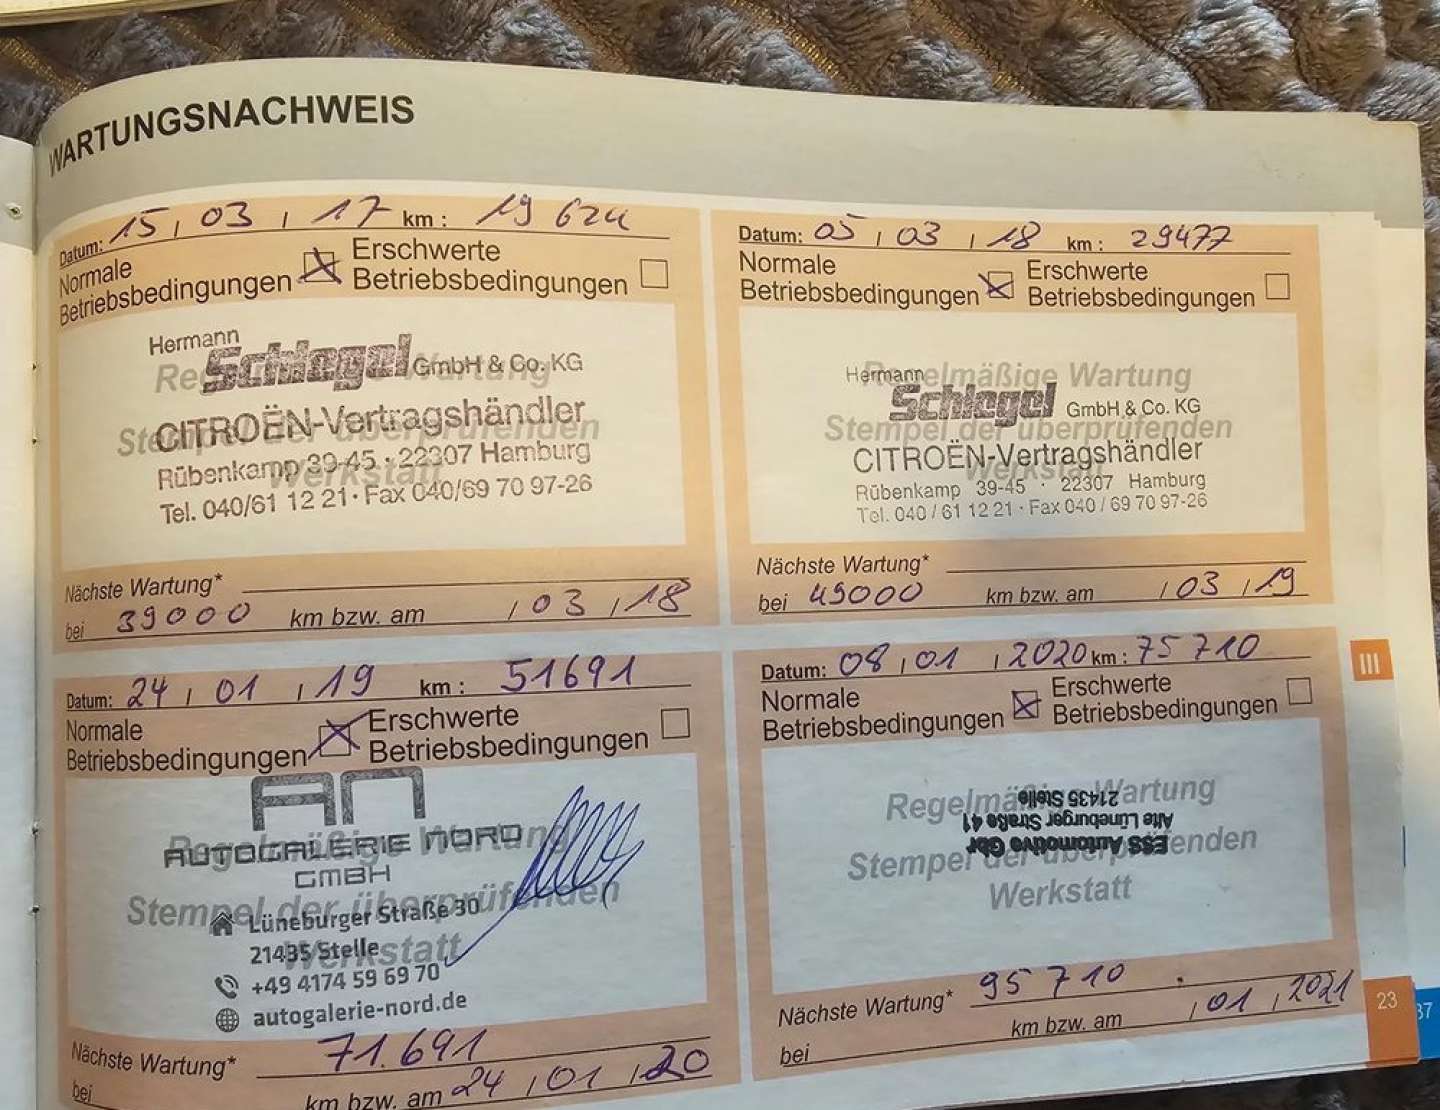 WARTUNGSNACHWEIS
Datum: 15, 03, 17 km: 19 624
Normale Betriebsbedingungen
Erschwerte Betriebsbedingungen
Regelmäßige Wartung
Stempel der überprüfenden
Werkstatt
Hermann
Schlegel GmbH & Co. KG
CITROËN-Vertragshändler
Rübenkamp 39-45 · 22307 Hamburg
Tel. 040/61 12 21 · Fax 040/69 70 97-26
Nächste Wartung*
bei 39000 km bzw. am , 03, 18
Datum: 05, 03, 18 km: 29477
Normale Betriebsbedingungen
Erschwerte Betriebsbedingungen
Regelmäßige Wartung
Stempel der überprüfenden
Werkstatt
Hermann
Schlegel GmbH & Co. KG
CITROËN-Vertragshändler
Rübenkamp 39-45 · 22307 Hamburg
Tel. 040 / 61 12 21 · Fax 040 / 69 70 97-26
Nächste Wartung*
bei 49000 km bzw. am , 03, 19
Datum: 24, 01, 19 km: 51691
Normale Betriebsbedingungen
Erschwerte Betriebsbedingungen
Regelmäßige Wartung
Stempel der überprüfenden
Werkstatt
AN
AUTOGALERIE NORD
GMBH
Lüneburger Straße 30
21435 Stelle
+49 4174 59 69 70
autogalerie-nord.de
Nächste Wartung* 71.691
bei km bzw. am 24, 01, 20
Datum: 08, 01, 2020 km: 75 710
Normale Betriebsbedingungen
Erschwerte Betriebsbedingungen
Regelmäßige Wartung
Stempel der überprüfenden
Werkstatt
ESS Automotive Gbr
Alte Lüneburger Straße 41
21435 Stelle
Nächste Wartung* 95 710
bei km bzw. am , 01, 2021
III
23
37